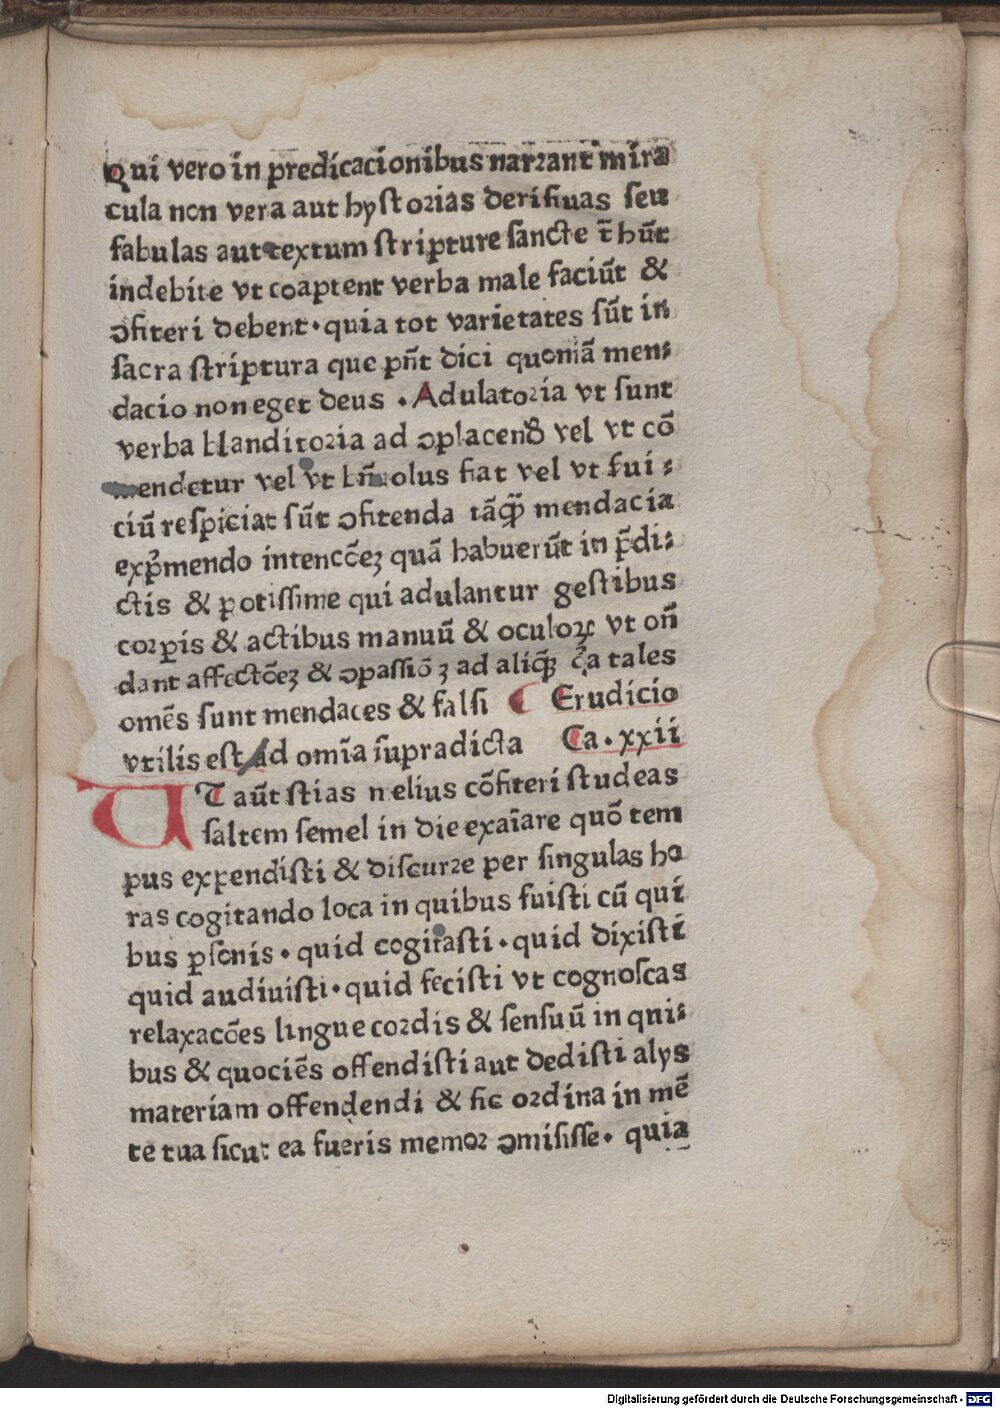 Qui vero in predicacionibus narrant mira
cula non vera aut hystorias derisiuas seu
fabulas aut textum scripture sancte t̄ hūt
indebite vt coaptent verba male faciūt &
ↄfiteri debent · quia tot varietates sūt in
sacra scriptura que pn̄t dici quoniā men⸗
dacio non eget deus . Adulatoria vt sunt
verba blanditoria ad ↄplacend vel vt cō
mendetur vel vt bn̄uolus fiat vel vt sui⸗
ciū respiciat sūt ↄfitenda tāꝙ mendacia
exp̄mendo intencōeꝫ quā habuerūt in p̄di⸗
ctis & potissime qui adulantur gestibus
corꝑis & actibus manuū & oculoꝝ vt on̄
dant affectōeꝫ & ↄpassiōꝫ ad aliꝙ̄ c̄a tales
omēs sunt mendaces & falsi ¶ Erudicio
vtilis est ad omīa supradicta Ca · xxii
UT aūt scias melius cōfiteri studeas
saltem semel in die exaīare quō tem
pus expendisti & discurre per singulas ho
ras cogitando loca in quibus fuisti cū qui
bus ꝑsonis · quid cogitasti · quid dixisti
quid audiuisti · quid fecisti vt cognoscas
relaxacōes lingue cordis & sensuū in qui⸗
bus & quociēs offendisti aut dedisti alys
materiam offendendi & sic ordina in mē
te tua sicut ea fueris memor ↄmisisse · quia
Digitalisierung gefördert durch die Deutsche Forschungsgemeinschaft - DFG